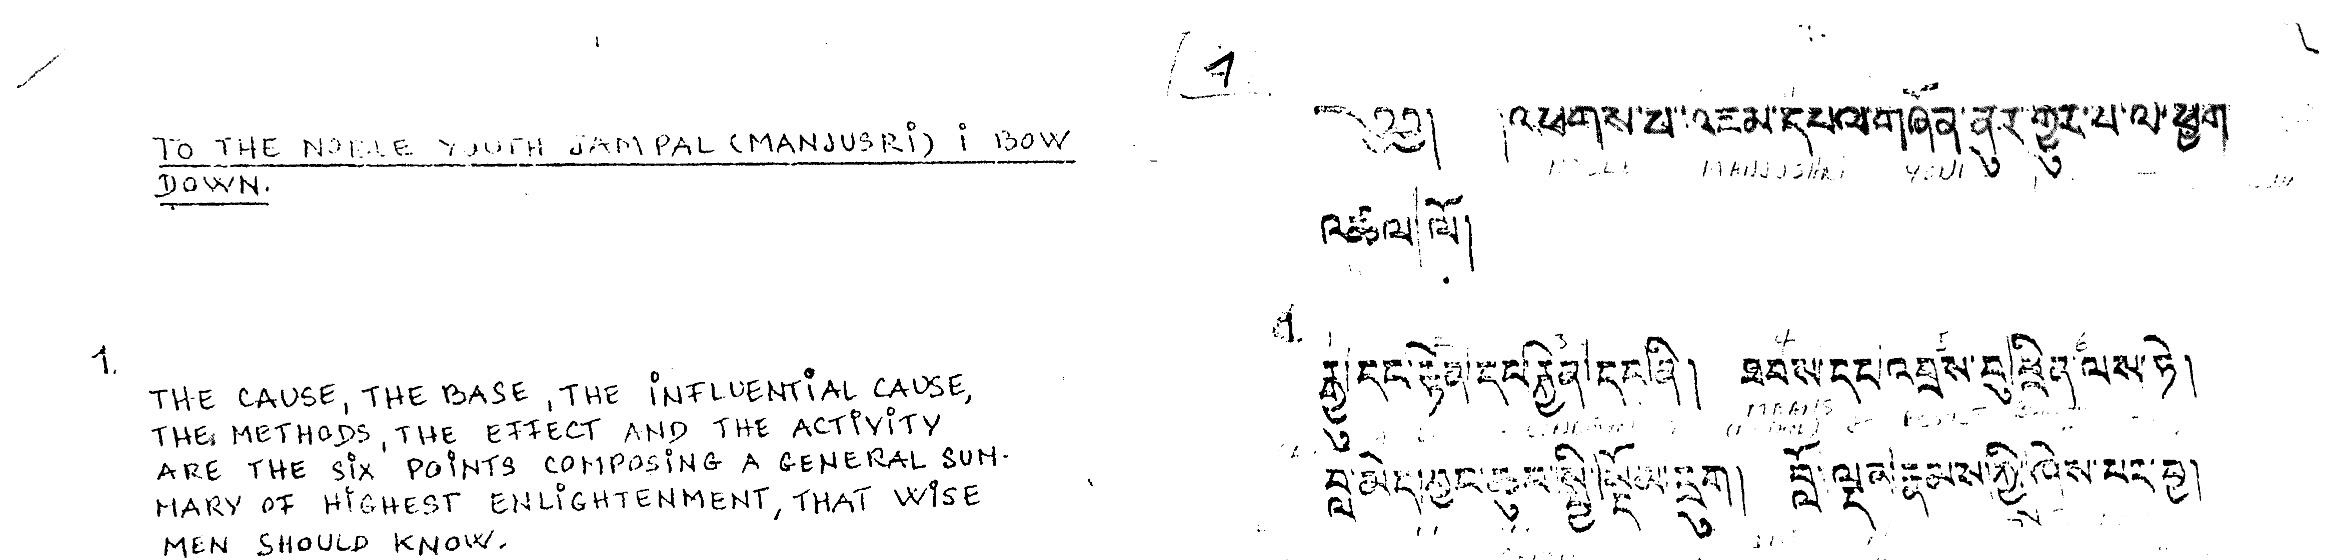 TO THE NOBLE YOUTH JAMPAL (MANJUSRI) I BOW
DOWN.
1.
THE CAUSE, THE BASE, THE INFLUENTIAL CAUSE,
THE METHODS, THE EFFECT AND THE ACTIVITY
ARE THE SIX POINTS COMPOSING A GENERAL SUM-
MARY OF HIGHEST ENLIGHTENMENT, THAT WISE
MEN SHOULD KNOW.
1
༄༅། །འཕགས་པ་འཇམ་དཔལ་གཞོན་ནུར་གྱུར་པ་ལ་ཕྱག
MANJUSHRI
འཚལ་ལོ།
1.
1 3 4 5 6
རྒྱུ་དང་རྟེན་དང་རྐྱེན་དང་ནི། ཐབས་དང་འབྲས་བུ་ཕྲིན་ལས་ཏེ།
MEANS
བླ་མེད་བྱང་ཆུབ་སྤྱི་སྡོམ་དྲུག། བློ་ལྡན་རྣམས་ཀྱི་ཤེས་པར་བྱ།